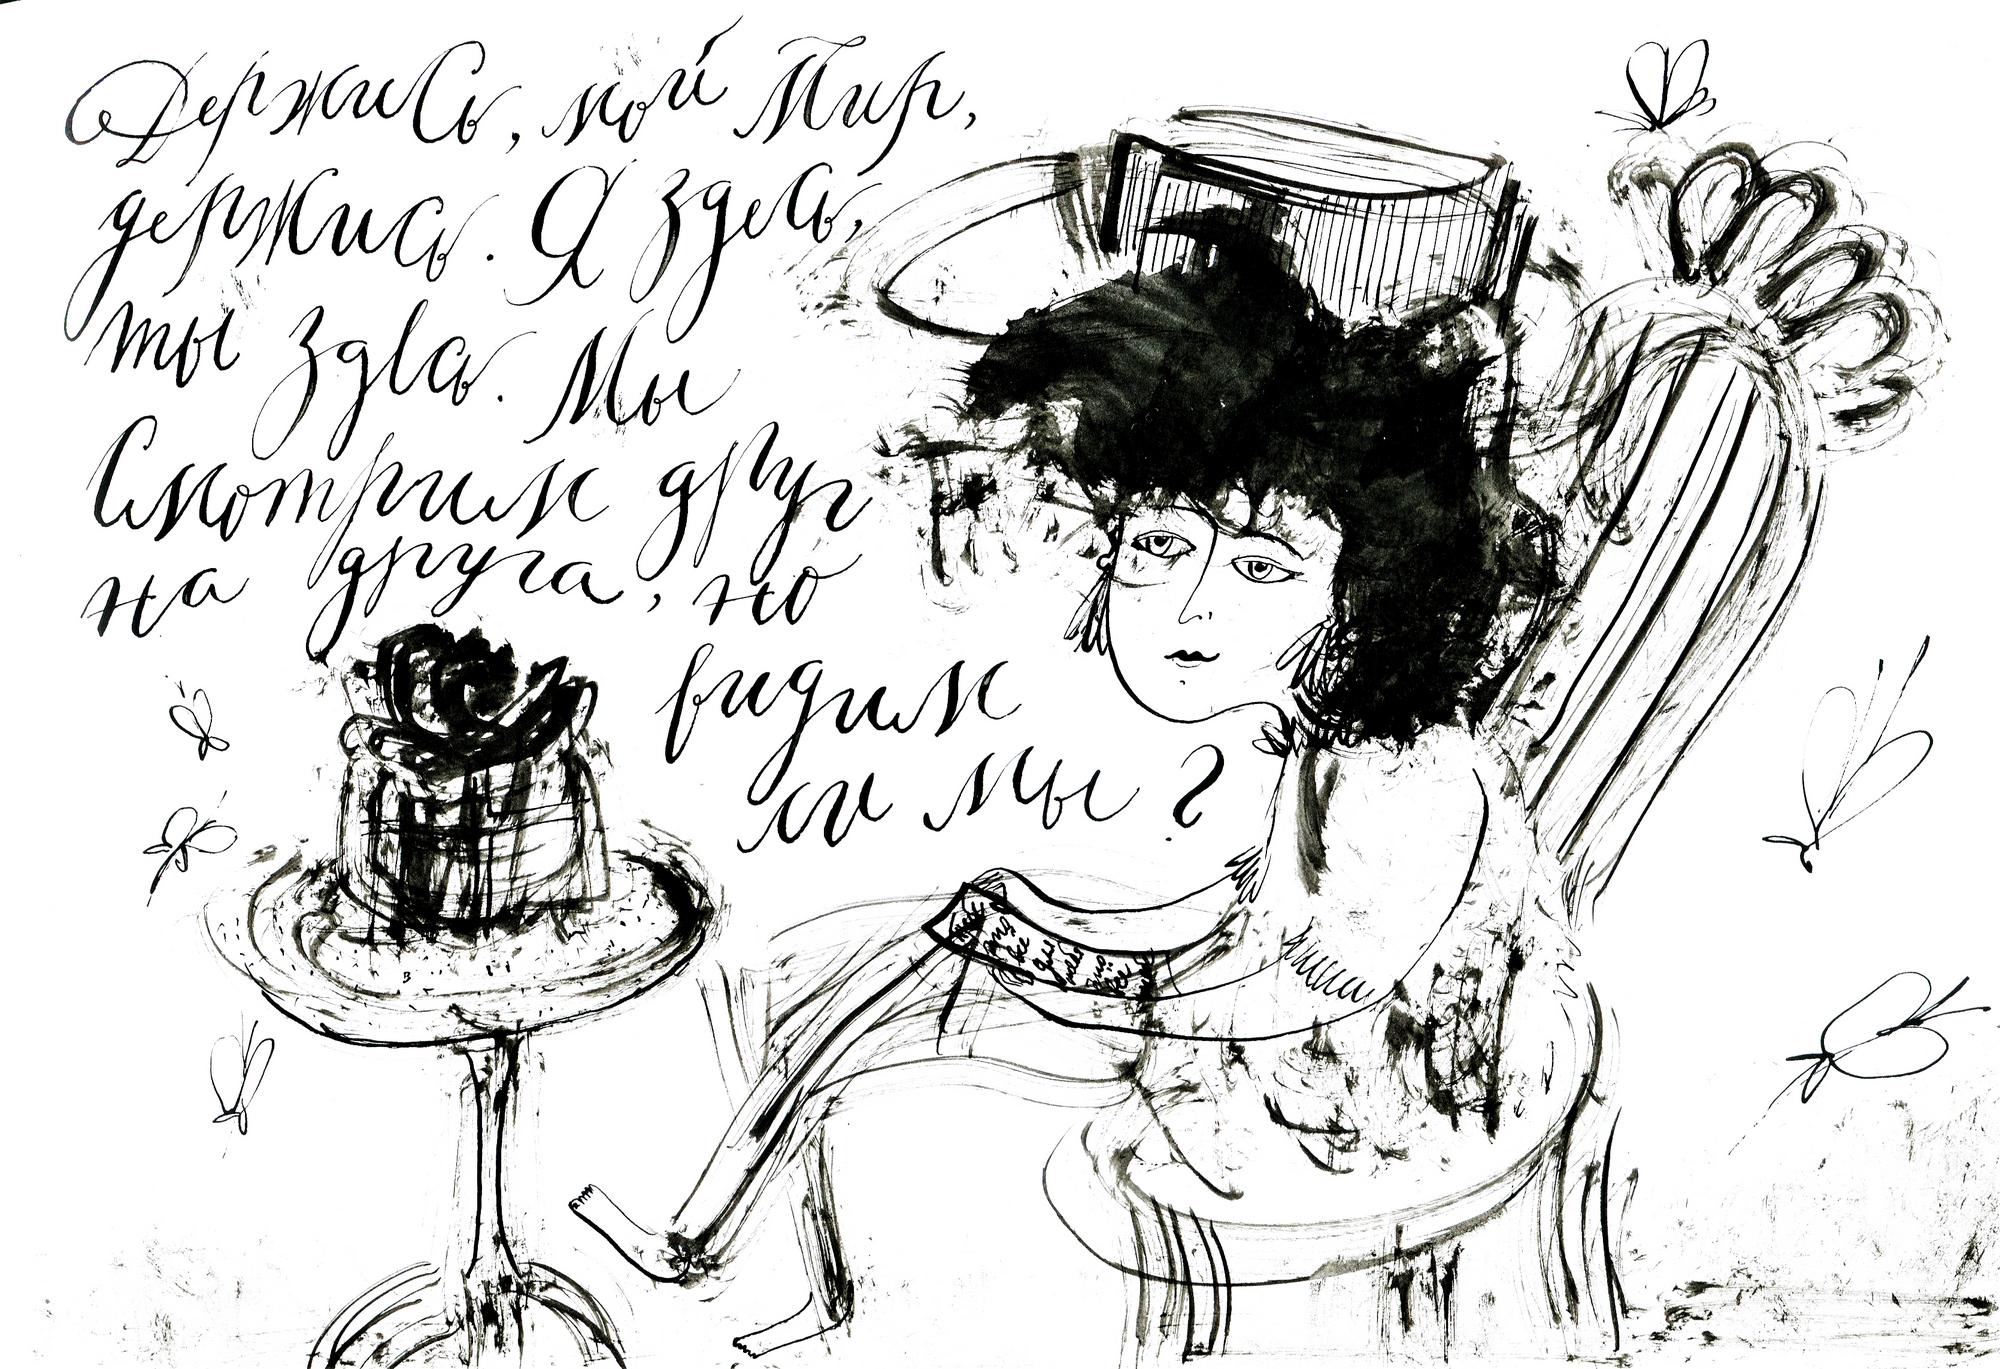 Держись, мой Мир,
держись. Я здесь,
ты здесь. Мы
Смотрим друг
на друга, но
видим
ли мы?